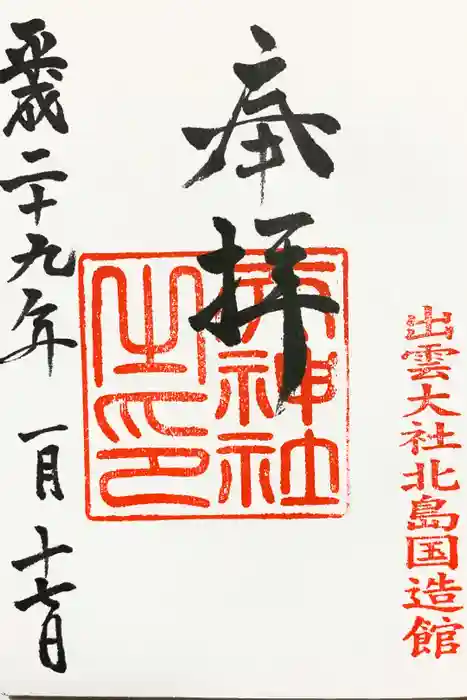 出雲大社北島国造館
奉拝
神社
之印
平成二十九年 一月 十七日